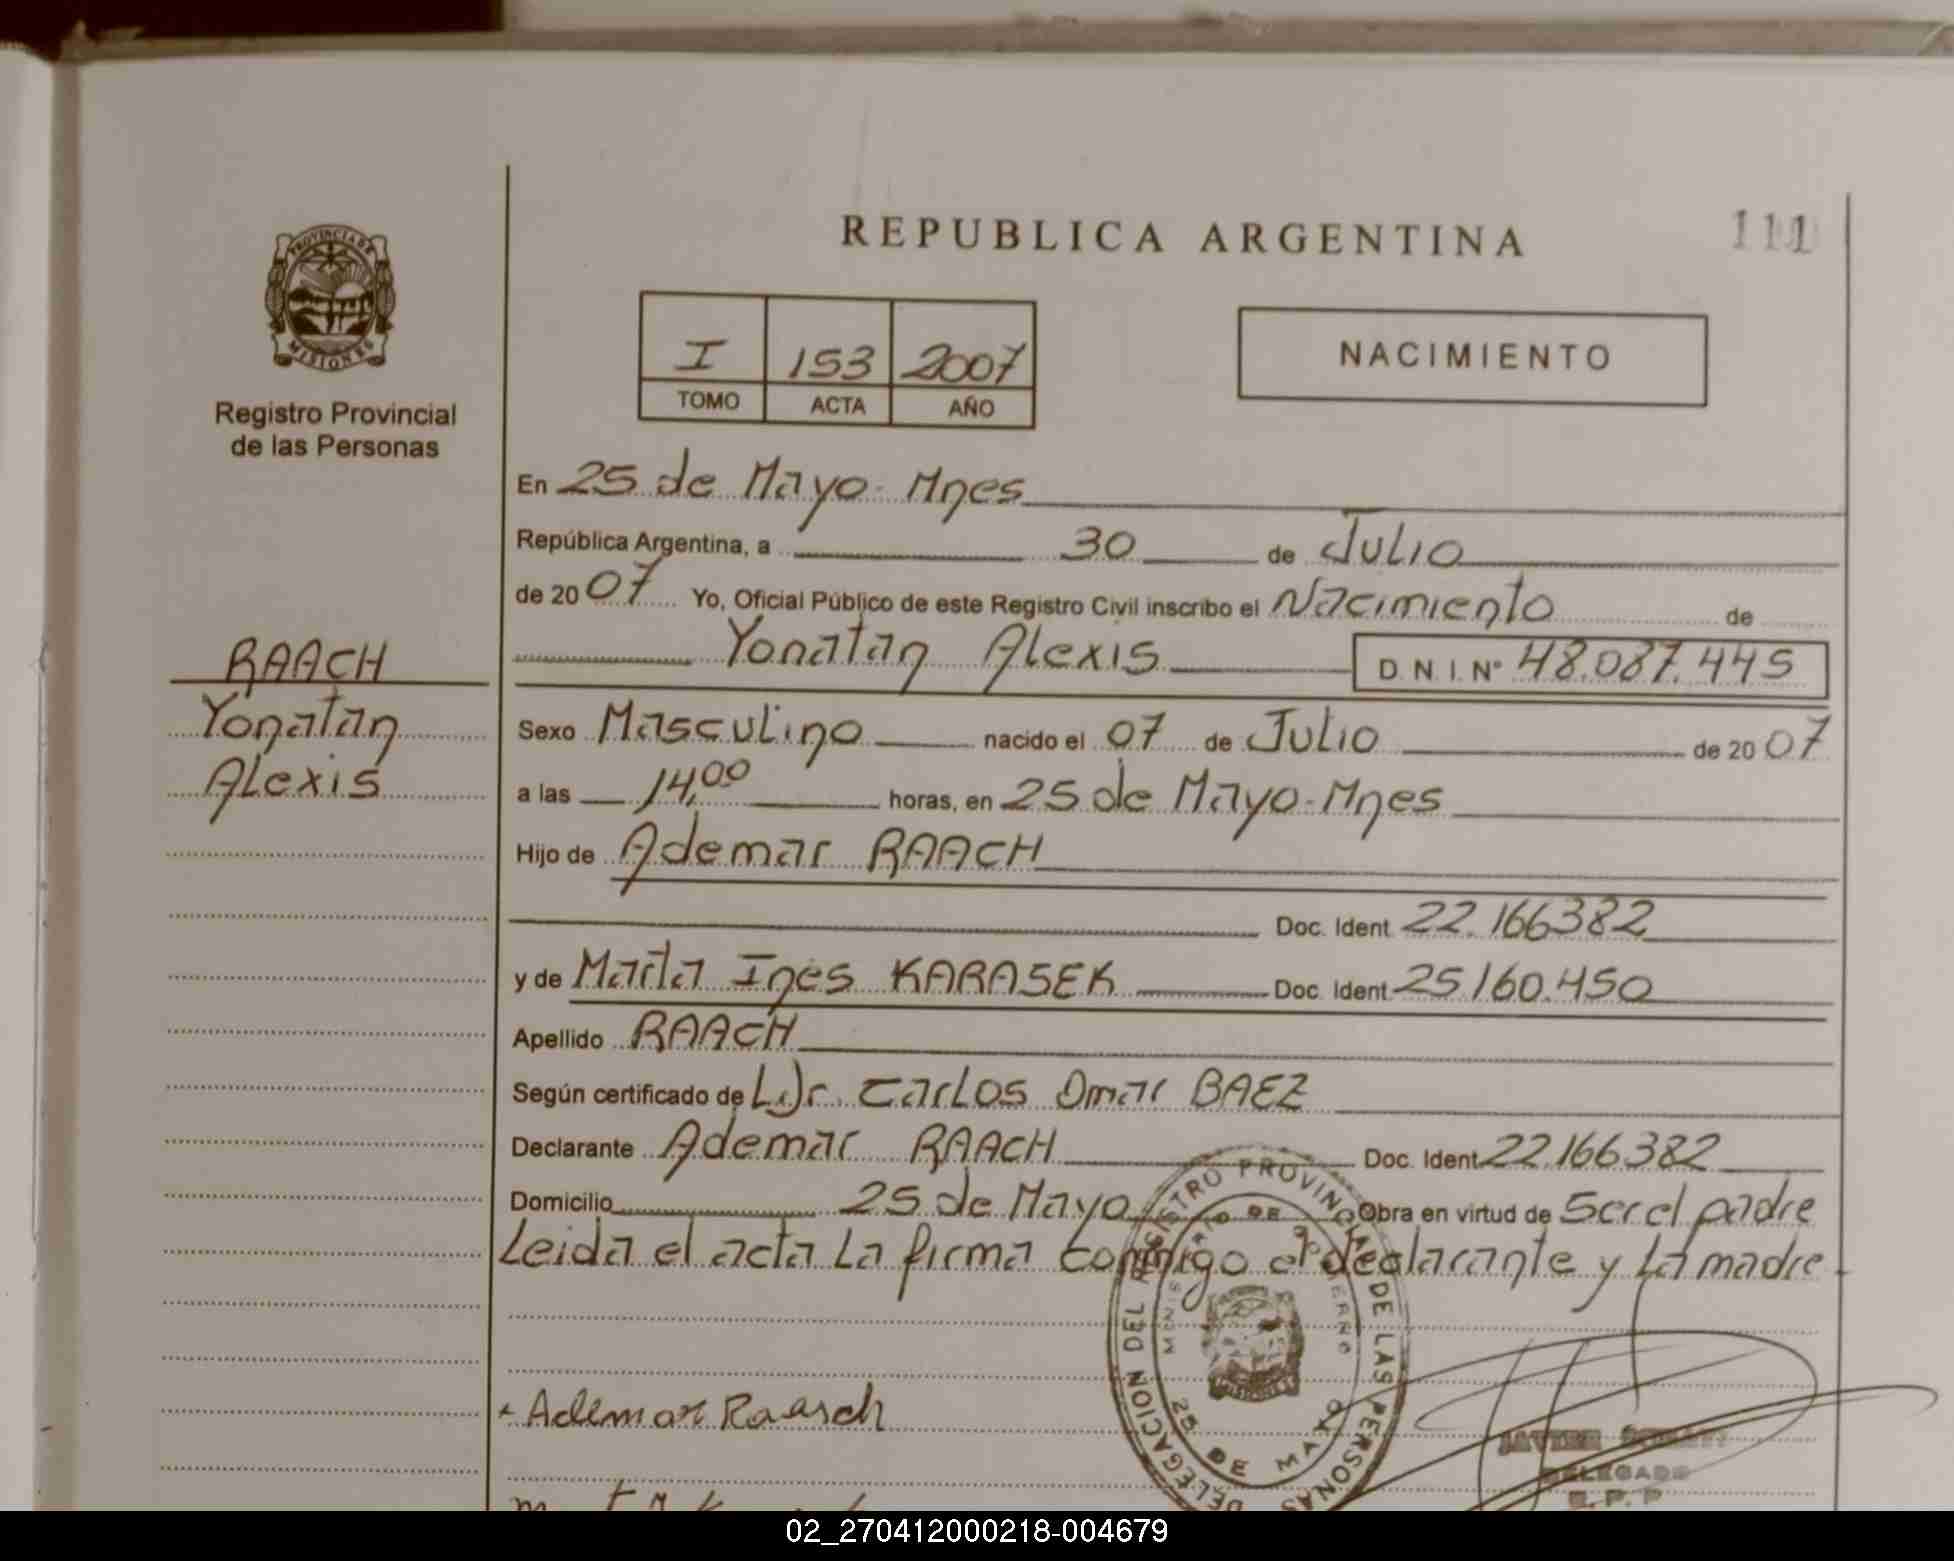 REPUBLICA ARGENTINA
111
PROVINCIA DE
MISIONES
Registro Provincial
de las Personas
I 153 2007
TOMO ACTA AÑO
NACIMIENTO
En 25 de Mayo - Mnes
República Argentina, a 30 de Julio
de 2007 Yo, Oficial Público de este Registro Civil inscribo el Nacimiento de
Yonatan Alexis D.N.I. Nº 48.087.445
RAACH
Yonatan
Alexis
Sexo Masculino nacido el 07 de Julio de 2007
a las 14,00 horas, en 25 de Mayo - Mnes
Hijo de Ademar RAACH
Doc. Ident. 22.166382
y de María Ines KARASEK Doc. Ident. 25160.450
Apellido RAACH
Según certificado de Dr. Carlos Omar BAEZ
Declarante Ademar RAACH Doc. Ident. 22.166.382
Domicilio 25 de Mayo Obra en virtud de Ser el padre
Leida el acta La firma conmigo el declarante y La madre
DELEGACION DEL REGISTRO PROVINCIAL DE LAS PERSONAS
MINISTERIO DE GOBIERNO
25 DE MAYO
Ademar Raasch
JAVIER
DELEGADO
R.P.P
02_270412000218-004679